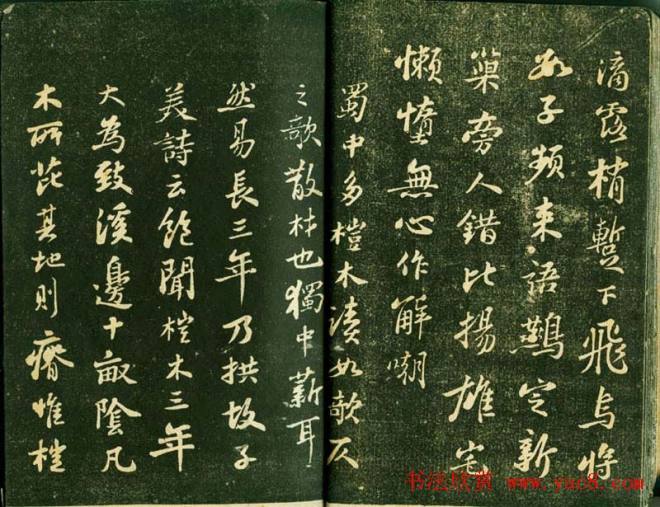 滴露梢蹔下飛烏將
數子頻來語鷰定新
巢旁人錯比揚雄宅
懶惰無心作解嘲
蜀中多榿木讀如欹仄
之欹散材也獨中薪耳
然易長三年乃拱故子
美詩云飽聞榿木三年
大為致溪邊十畝陰凡
木所芘其地則瘠惟榿
书法欣赏 www.yac8.com